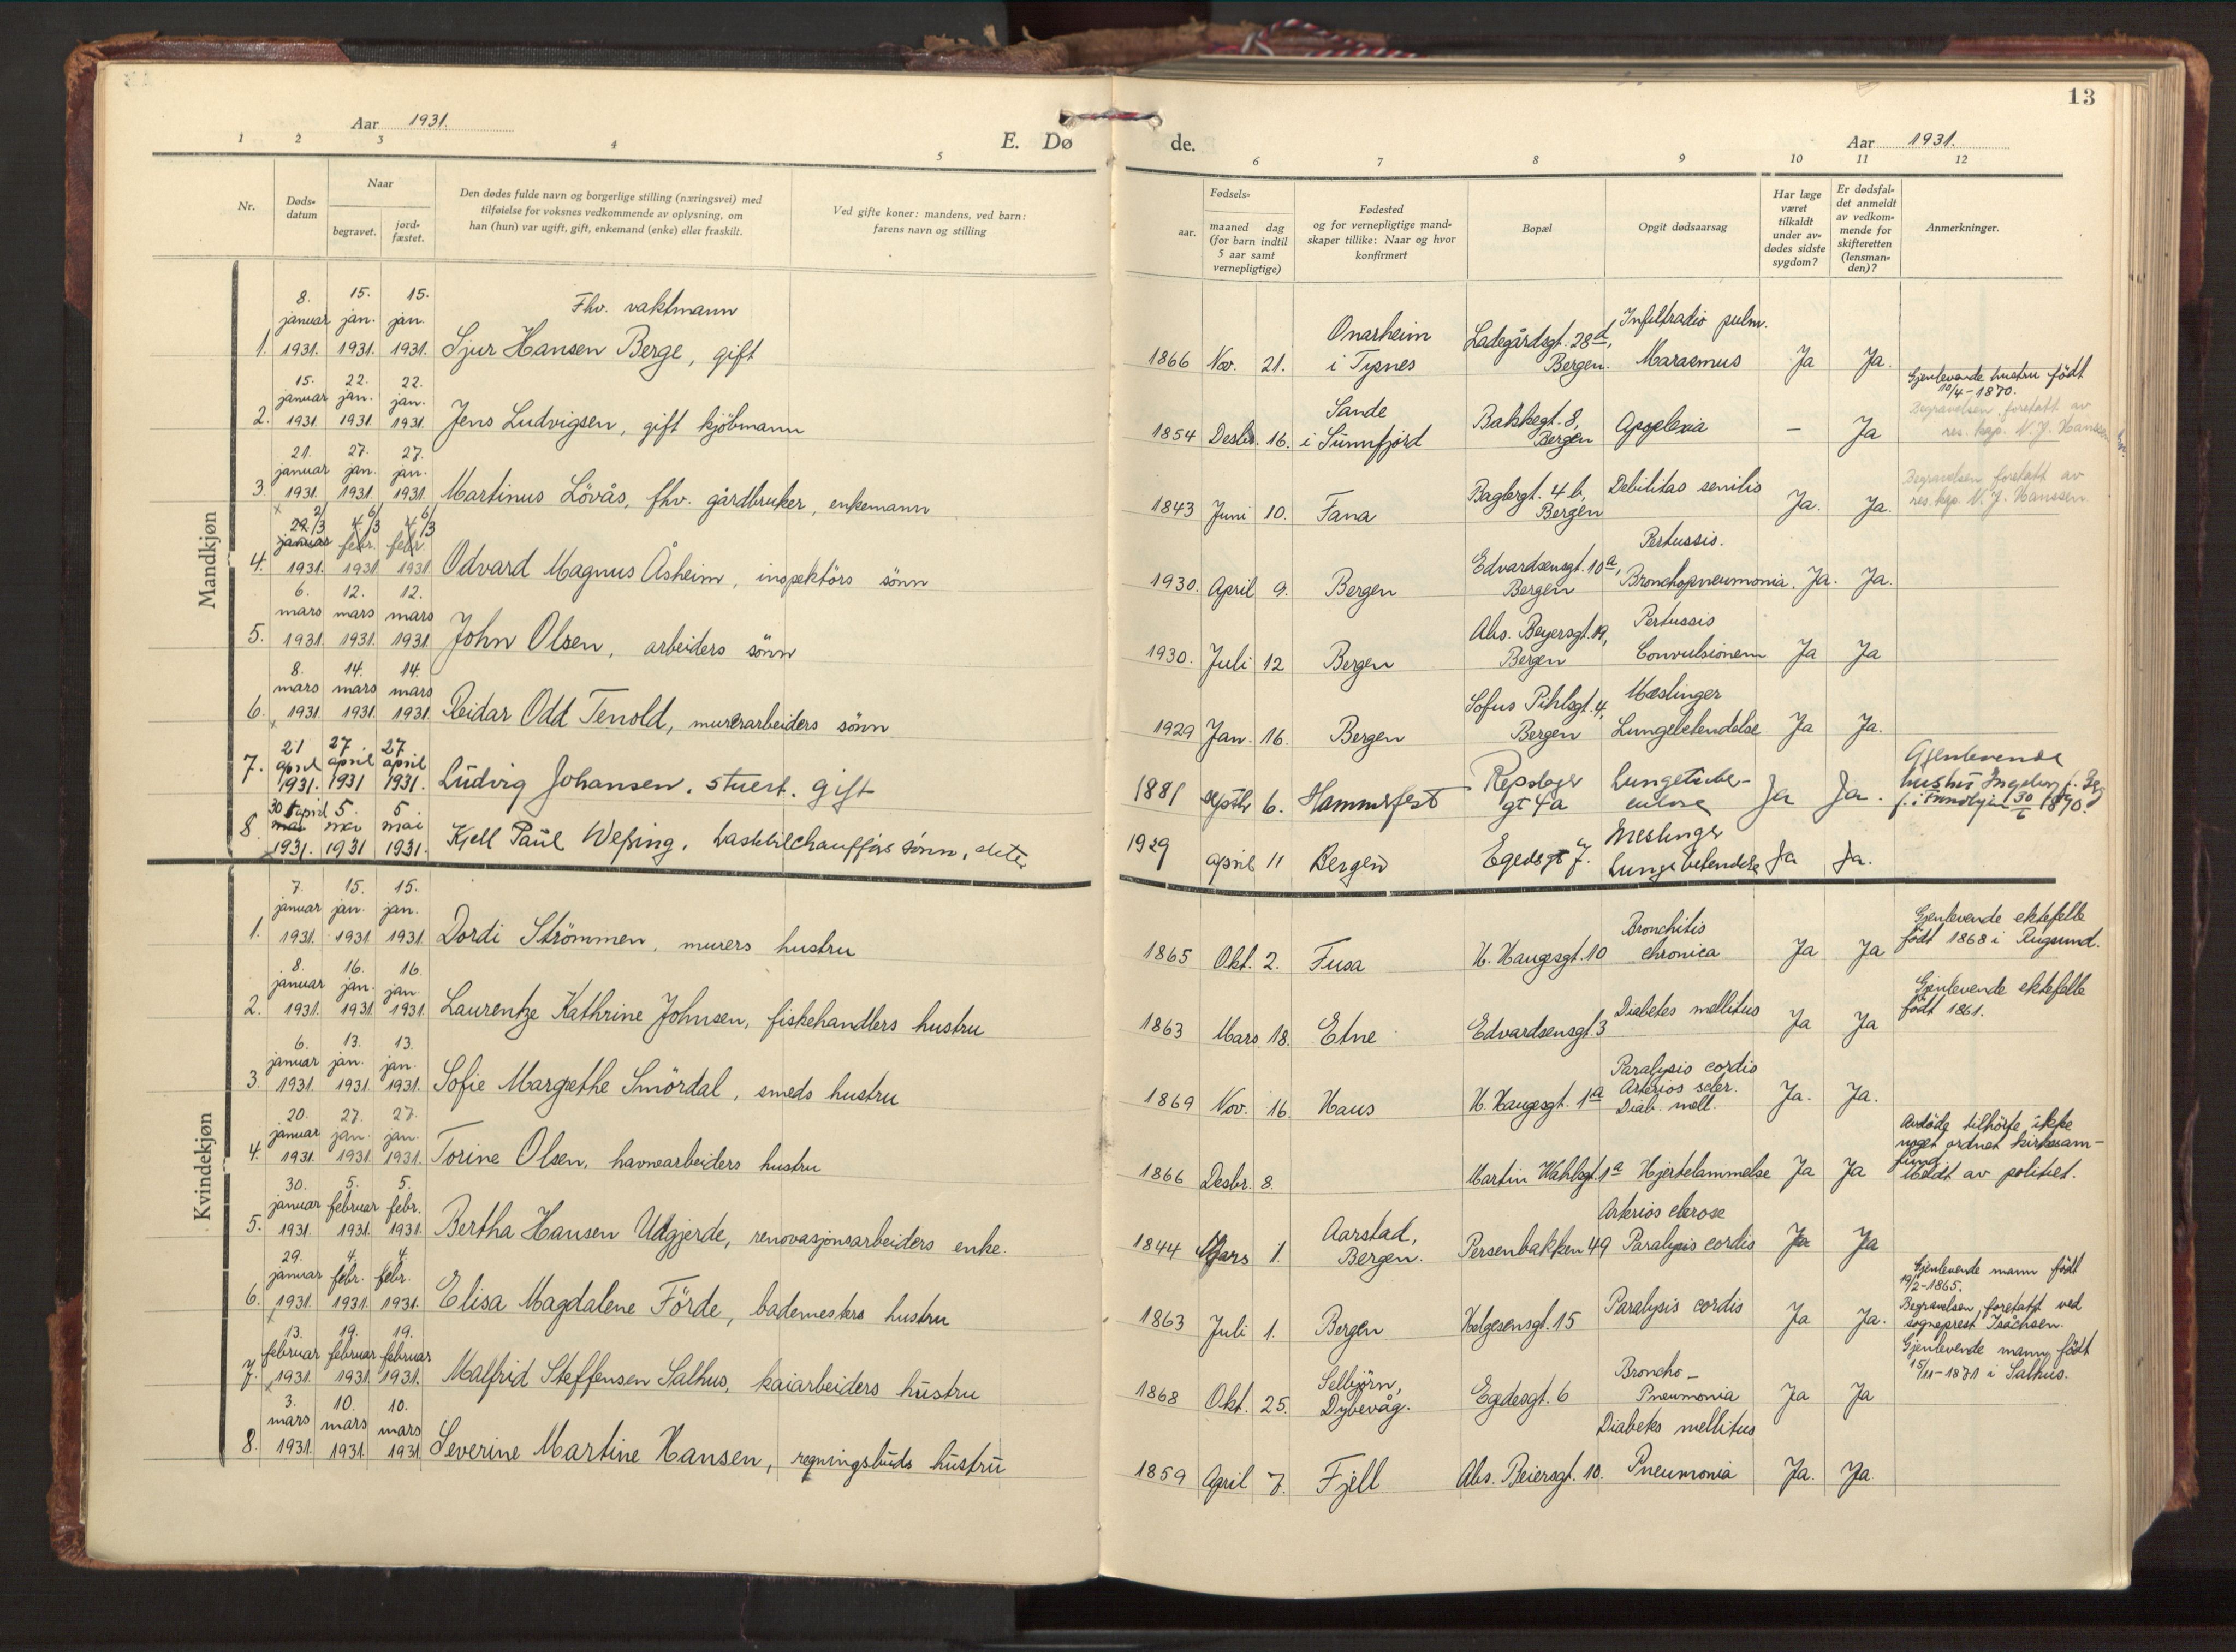 13
Aar 1931.
E. Dø
1 2 3 4 5
Nr.
Døds-
datum
Naar
begravet.
jord-
fæstet.
Den dødes fulde navn og borgerlige stilling (næringsvei) med
tilføielse for voksnes vedkommende av oplysning, om
han (hun) var ugift, gift, enkemand (enke) eller fraskilt.
Ved gifte koner: mandens, ved barn:
farens navn og stilling
Mandkjøn
8. 15. 15. Fhv. vaktmann
januar jan. jan.
1. 1931. 1931. 1931. Sjur Hansen Berge, gift
15. 22. 22.
januar jan. jan.
2. 1931. 1931. 1931. Jens Ludvigsen, gift kjöbmann
21. 27. 27.
januar jan. jan.
3. 1931. 1931. 1931. Martinus Lövås, fhv. gårdbruker, enkemann
2/3 6/3 6/3
januar febr. febr.
4. 1931. 1931. 1931. Odvard Magnus Åsheim, inspektörs sönn
6. 12. 12.
mars mars mars
5. 1931. 1931. 1931. John Olsen, arbeiders sönn
8. 14. 14.
mars mars mars
6. 1931 1931. 1931. Reidar Odd Tenold, murerarbeiders sönn
21 27. 27
april april april
7. 1931. 1931 1931. Ludvig Johansen, stuert. gift
30 april 5. 5
mai mai mai
8. 1931. 1931 1931. Kjell Paul Wessing, Lastebilchaufförs sönn,
Kvindekjøn
7. 15. 15.
januar jan. jan.
1. 1931. 1931 1931. Dordi Strömmen, murers hustru
8. 16. 16.
januar jan. jan.
2. 1931. 1931. 1931. Laurentze Kathrine Johnsen, fiskehandlers hustru
6. 13. 13.
januar jan. jan.
3. 1931. 1931. 1931. Sofie Margrethe Smördal, smeds hustru
20. 27. 27.
januar jan. jan.
4. 1931. 1931. 1931. Torine Olsen, havnearbeiders hustru
30. 5. 5.
januar februar febr.
5. 1931. 1931. 1931. Bertha Hansen Udgjerde, renovasjonsarbeiders enke.
29. 4. 4.
januar febr. febr.
6. 1931. 1931. 1931. Elisa Magdalene Förde, bademesters hustru
13. 19. 19.
februar februar februar
7. 1931. 1931. 1931. Malfrid Steffensen Salhus, kaiarbeiders hustru
3. 10. 10.
mars mars mars
8. 1931. 1931. 1931 Severine Martine Hansen, regningsbuds hustru
de.
Aar 1931.
6 7 8 9 10 11 12
Fødsels-
aar.
maaned dag
(for barn indtil
5 aar samt
vernepligtige)
Fødested
og for vernepligtige mand-
skaper tillike: Naar og hvor
konfirmert
Bopæl
Opgit dødsaarsag
Har læge
været
tilkaldt
under av-
dødes sidste
sygdom?
Er dødsfal-
det anmeldt
av vedkom-
mende for
skifteretten
(lensman-
den)?
Anmerkninger.
Onarheim Ladegårdsgt. 28d, Infiltradio pulm.
1866 Nov. 21. i Tysnes Bergen. Marasmus Ja Ja.
Gjenlevende hustru födt
10/4-1870.
Sande Bakkegt. 8, Begravelsen foretatt av
1854 Desbr. 16. i Sunnfjord Bergen Apoplexia - Ja res. kap. N. J. Hanssen
Baglergt. 4 b, Debilitas senilis Begravelsen foretatt av
1843 Juni 10. Fana Bergen Ja. Ja. res. kap. N. J. Hanssen.
Pertussis.
Edvardsensgt. 10a,
1930. April 9. Bergen Bergen Bronchopneumonia. Ja. Ja.
Abs. Beyersgt. 19, Pertussis
1930. Juli 12 Bergen Bergen Convulsionem Ja Ja
Sofus Pihlsgt. 4, Meslinger
1929 Jan. 16. Bergen Bergen Lungebetendelse Ja Ja.
Gjenlevende
Repslager Lungetuber- hustru Ingeborg f.
1881 septbr 6. Hammerfest gt 4a culose Ja Ja. 30/6 1870.
Meslinger
1929 april 11 Bergen Egedsgt 7. Lungebetendelse Ja Ja.
Bronchitis Gjenlevende ektefelle
1865 Okt. 2. Fusa H. Haugesgt. 10 chronica Ja Ja födt 1868 i Rugsund.
Gjenlevende ektefelle
1863 Mars 18. Etne Edvardsensgt. 3 Diabetes mellitus Ja Ja födt 1861.
Paralysis cordis
Arterios scler.
1869 Nov. 16. Haus H. Haugesgt. 1a Diab. mell. Ja. Ja.
Avdöde tilhörte ikke
noget ordnet kirkesam-
fund.
1866 Desbr. 8. Martin Wahlsgt. 1a Hjertelammelse Ja Ja Meldt av politiet.
Aarstad, Arterios clerose
1844 Mars 1. Bergen. Persenbakken 49 Paralysis cordis Ja Ja
Gjenlevende mann födt
19/2-1865.
1863 Juli 1. Bergen Helgesensgt. 15 Paralysis cordis Ja Ja. Begravelsen foretatt ved
sogneprest Isachsen.
Gjenlevende mann födt
Selbjörn, Broncho- 15/11-1871 i Salhus.
1868 Okt. 25. Dybevåg. Egedesgt. 6 Pneumonia Ja Ja
Diabetes mellitus
1859 April 7. Fjell Abs. Beiersgt. 10. Pneumonia Ja. Ja.